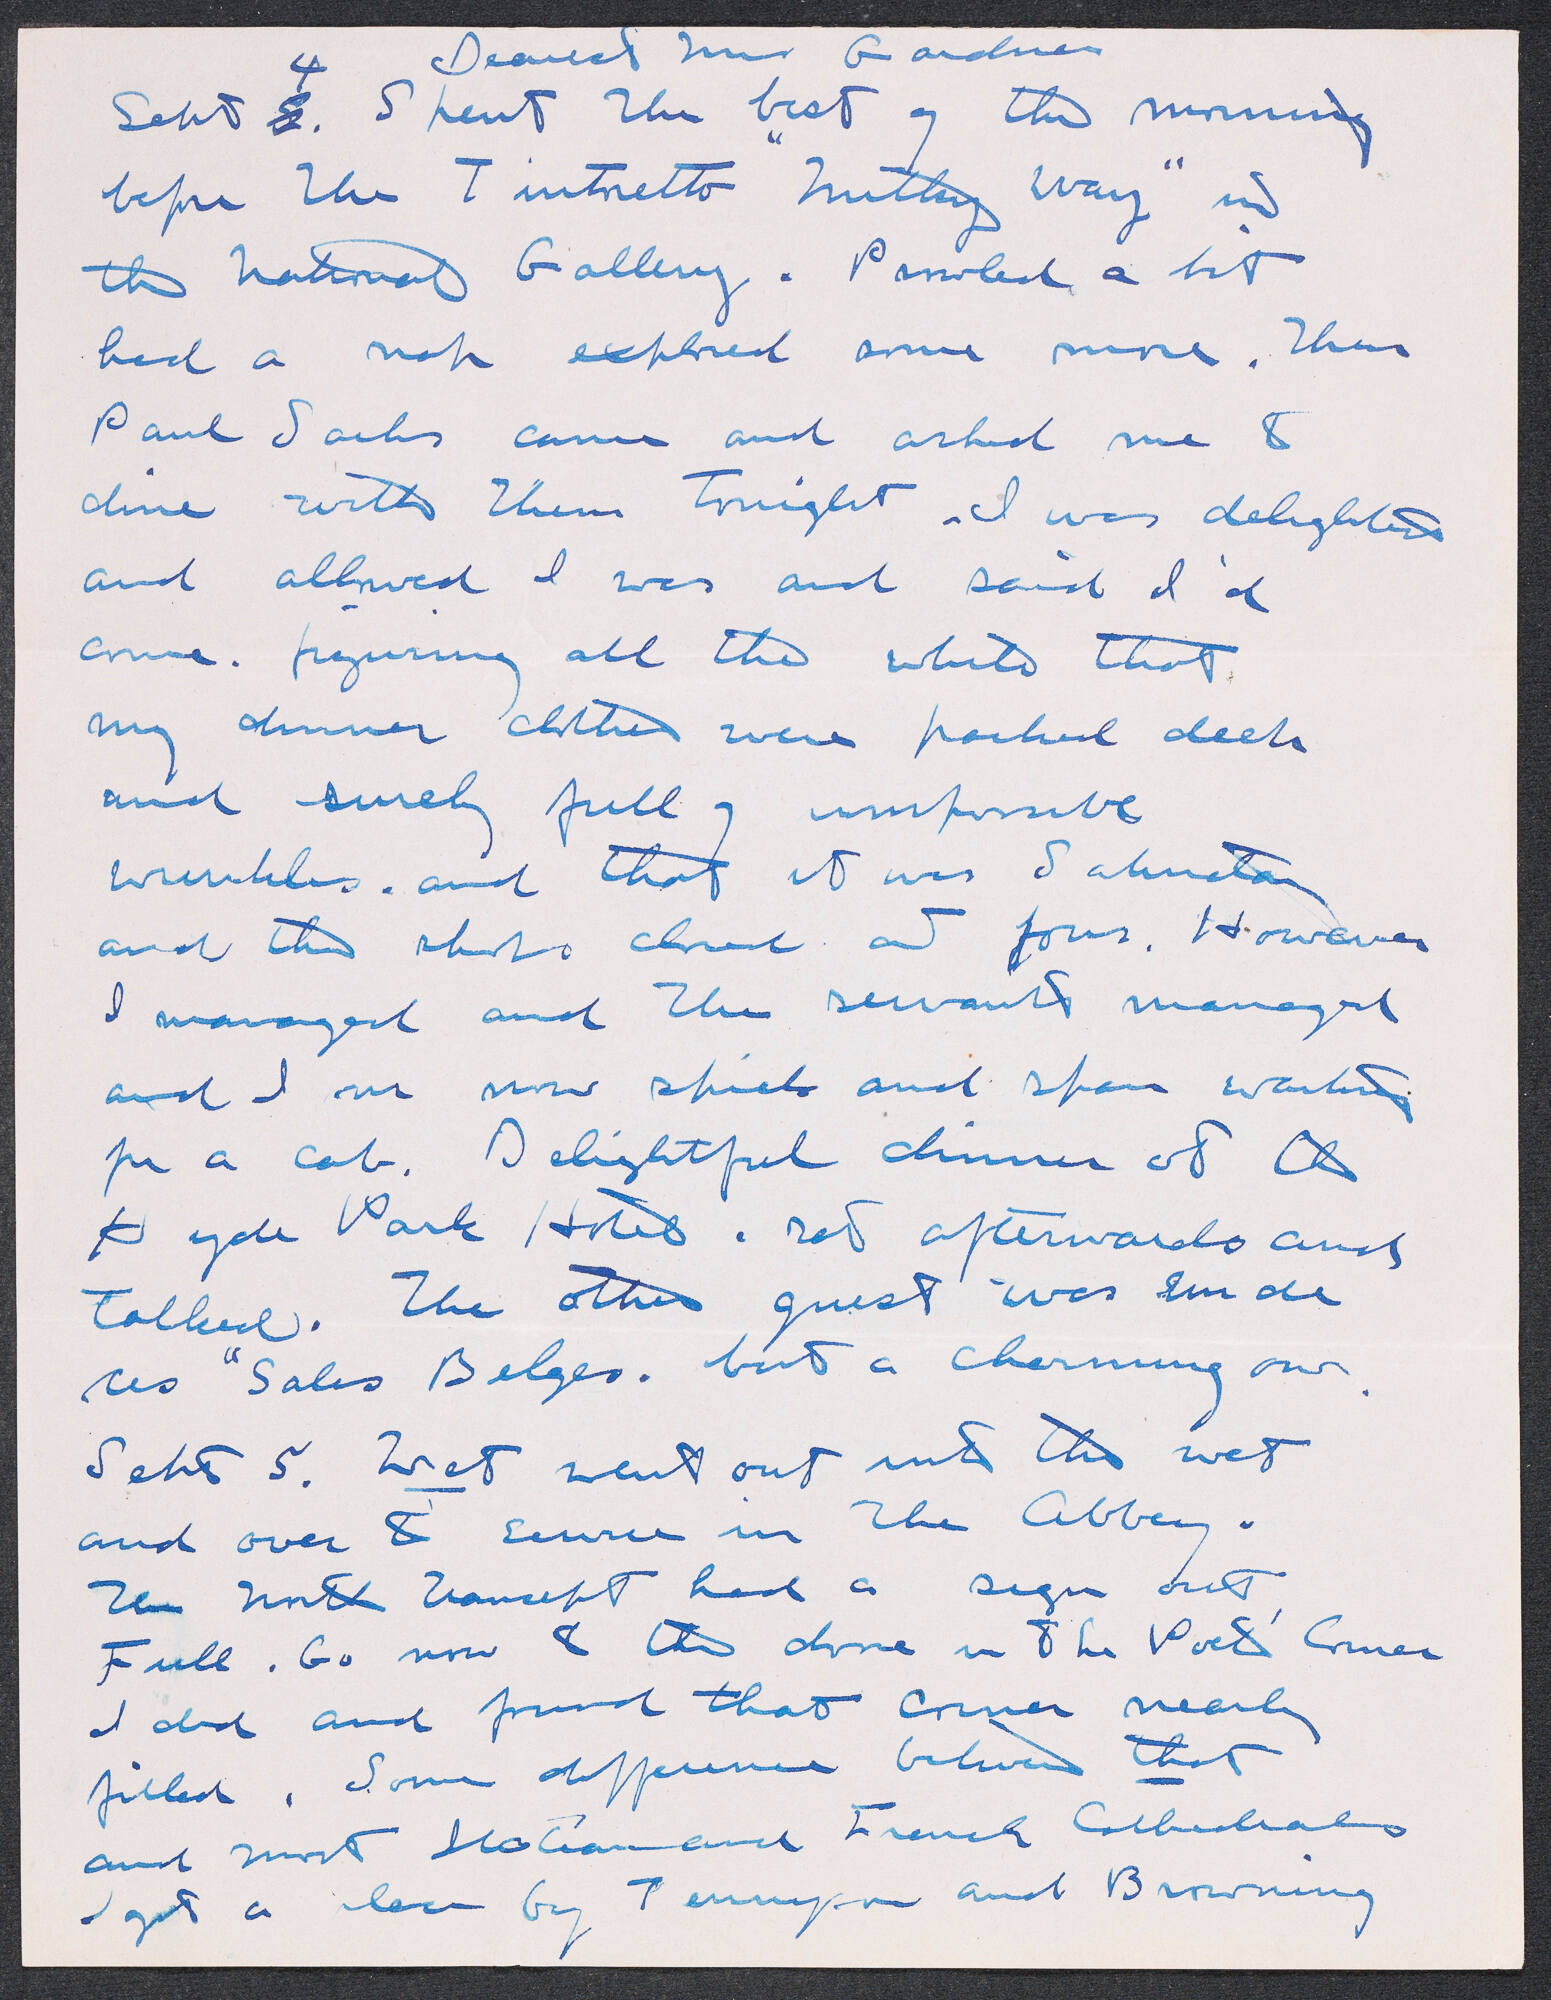 Dearest Mrs Gardner
Sept 4. Spent the best of the morning
before the Tintoretto "Milky Way" in
the National Gallery. Prowled a bit
had a nap explored some more. Then
Paul Sachs came and asked me to
dine with them tonight. I was delighted
and allowed I was and said I'd
come. figuring all the while that
my dinner clothes were packed deep
and surely full of impossible
wrinkles. and that it was Saturday
and the shops closed at four. However
I managed and the servants managed
and I am now spick and span waiting
for a cab. Delightful dinner at the
Hyde Park Hotel. sat afterwards and
talked. The other guest was un de
ces "Sales Belges. but a charming one.
Sept 5. Wet went out into the wet
and over to service in the Abbey.
The North Transept had a sign out,
Full. Go now to the door in the Poets' Corner
I did and found that corner nearly
filled. Some difference between that
and most Italian and French Cathedrals
I got a by Tennyson and Browning